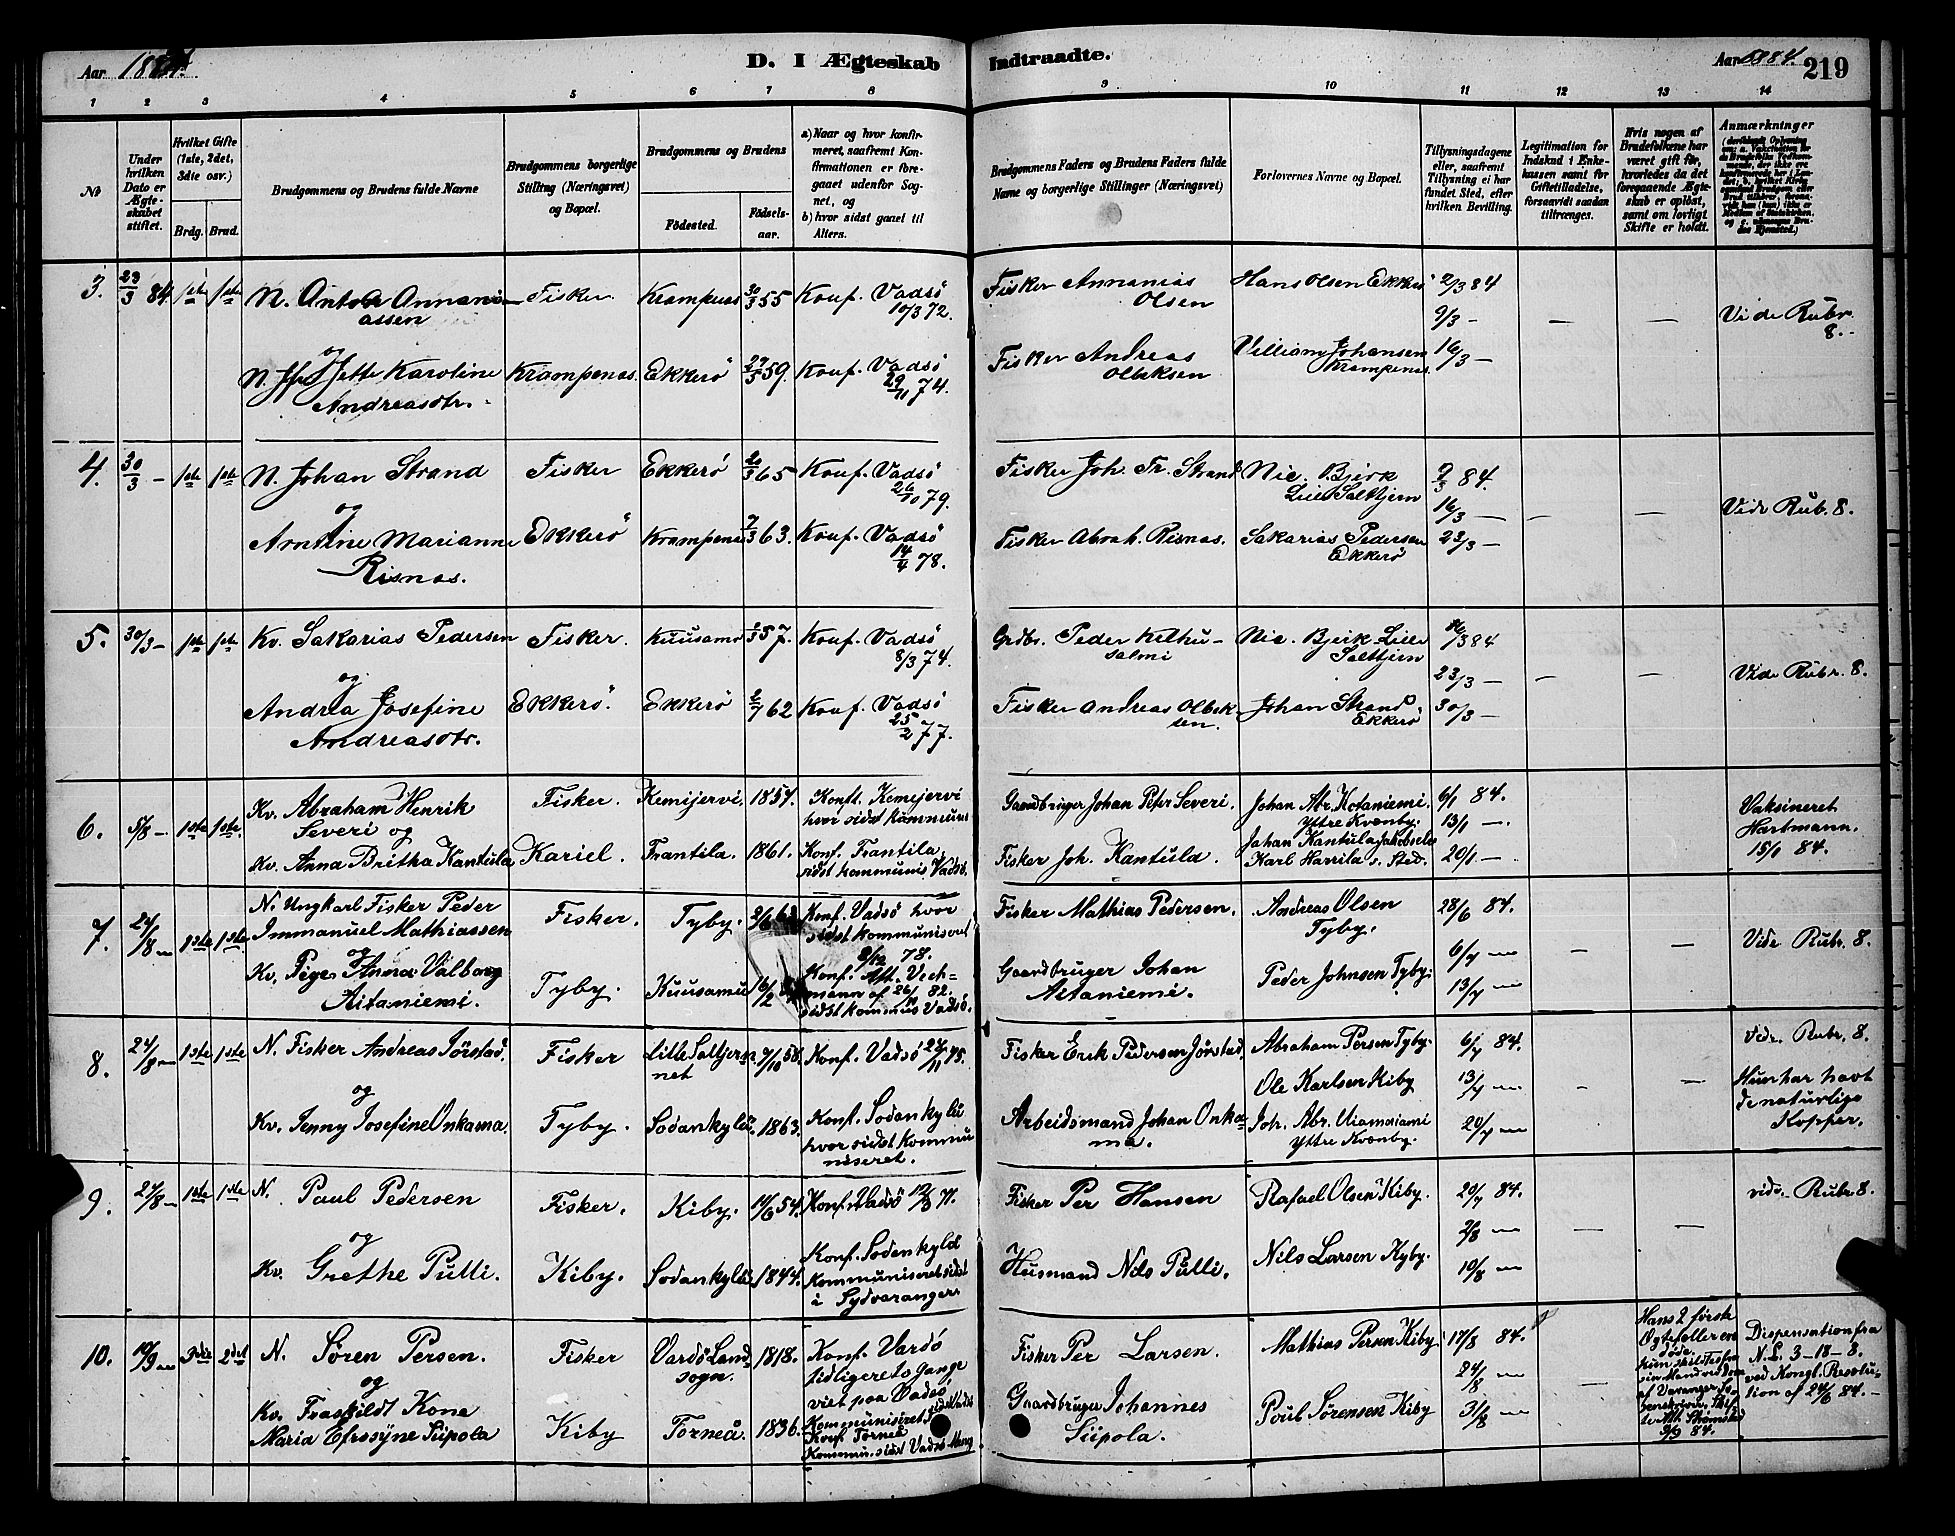 Aar 1884.
D. I Ægteskab Indtraadte.
Aar 1884. 219
1 2 3 4 5 6 7 8 9 10 11 12 13 14
No
Under hvilken Dato er Ægteskabet stiftet.
Hvilket Gifte (1ste, 2det, 3die osv.)
Brdg. Brud.
Brudgommens og Brudens fulde Navne
Brudgommens borgerlige Stilling (Næringsvei) og Bopæl.
Brudgommens og Brudens
Födested. Födsels-aar.
a) Naar og hvor konfirmeret, saafremt Konfirmationen er foregaaet udenfor Sognet, og
b) hvor sidst gaaet til Alters.
Brudgommens Faders og Brudens Faders fulde Navne og borgerlige Stillinger (Næringsvei)
Forlovernes Navne og Bopæl.
Tillysningsdagene eller, saafremt Tillysning ei har fundet Sted, efter hvilken Bevilling.
Legitimation for Indskud i Enkekassen samt for Giftetilladelse, forsaavidt saadan tiltrænges.
Hvis nogen af Brudefolkene har været gift för, hvorledes da det foregaaende Ægteskab er oplöst, samt om lovligt Skifte er holdt.
Anmærkninger
3. 23/3 84 1ste 1ste N. Anton Annaniassen Fisker Krampenes 30/3 55 Konf. Vadsö 10/3 72. Fisker Annanias Olsen Hans Olsen Ekkerö 2/3 84 9/3 — — — Vide Rubr. 8.
og
Jette Karoline Andreasdtr. Krampenes. Ekkerö 29/5 59. Konf. Vadsö 29/11 74. Fisker Andreas Olbeksen Villiam Johansen Krampenes. 16/3 —
4. 30/3 — 1ste 1ste N. Johan Strand Fisker Ekkerö 20/3 65 Konf. Vadsö 26/10 79. Fisker Joh. Fr. Strand Nic. Bjerk Lille Saltjern 9/3 84. 16/3 — — — Vide Rub. 8.
og
Arntine Marianne Risnes. Ekkerö Krampenes 7/3 63. Konf. Vadsö 14/4 78. Fisker Abrah. Risnes. Sakarias Pedersen Ekkerö 23/3 —
5. 30/3 — 1ste 1ste Kv. Sakarias Pedersen Fisker. Kuusamo 57. Konf. Vadsö 8/3 74. Grdbr. Peder Kelhusalmi Nic. Bjerk Lille Saltjern 16/3 84 23/3 — — — Vide Rubr. 8.
og
Andrea Josefine Andreasdtr. Ekkerö. Ekkerö 2/7 62 Konf. Vadsö 25/2 77. Fisker Andreas Olbeksen. Johan Strand Ekkerö 30/3 —
6. 5/8 — 1ste 1ste. Kv. Abraham Henrik Severi og Fisker. Kemijervi. 1857. Konft. Kemejervi hvor sidst kommuni Gaardbruger Johan Peter Severi. Johan Abr. Kotaniemi. Yttre Kvænby. 6/1 84. 13/1 —. Vaksineret Hartmann. 15/1 84.
Kv. Anna Britha Kantola Kariel. Frantila. 1861. Konf. Frantila, sidst kommunis. Vadsö. Fisker Joh. Kantula. Johan Kantula Jakobselv Karl Harrila s. Sted. 20/1 —.
7. 24/8 — 1ste 1ste N. Ungkarl Fisker Peder Immanuel Mathiassen Fisker. Tyby. 2/6 63 Konf. Vadsö hvor sidst kommuniseret 8/12 78. Fisker Mathias Pedersen. Andreas Olsen Tyby. 28/6 84. 6/7 — — Vide Rubr. 8.
og
Kv. Pige Anna Valborg Aitaniemi. Tyby. Kuusamu 16/2 Konf. Att. Vechmann af 26/11 82. sidst kommus Vadsö. Gaardbruger Johan Aitaniemi. Peder Johnsen Tyby. 13/7 —
8. 24/8 — 1ste 1ste N. Fisker Andreas Jörstad Fisker Lille Saltjernnet 9/10 58. Konf. Vadsö 28/11 75. Fisker Erik Pedersen Jörstad Abraham Persen Tyby. 6/7 84. Ole Karlsen Kiby 13/7 — — — vide Rubr. 8. Hun har havt de naturlige Kopper.
og
Kv. Jenny Josefine Onkama. Tyby. Sodankylä. 1863. Konf. Sodankylä hvor sidst kommuniseret. Arbeidsmand Johan Onkama. Joh. Abr. Yttre Kvænby. 20/7 —
9. 24/8 — 1ste 1ste N. Paul Pedersen Fisker. Kiby. 14/6 54. Konf. Vadsö 12/3 71. Fisker Per Hansen Rafael Olsen Kiby. 20/7 84. 2/8 — — — vide. Rubr. 8.
og
Kv. Grethe Pulli. Kiby. Sodankylä 1844. Konf. Sodankylä Kommuniseret sidst i Sydvaranger Husmand Nils Pulli. Nils Larsen Kyby. 10/8 —
10. 10/9 — 3die 2det N. Sören Persen. Fisker Vardö Landsogn. 1818. Konf. Vardö tidligere to Gange viet paa Vadsö Kommuniseret Sidst Vadsö Fisker Per Larsen. Mathias Persen Kiby 17/8 84. 24/8 — — Hans 2 første Ægtefeller ere døde. Dispensation fra N. L. 3-18-8. ved Kongl. Resolution af 24/6 84. —
og
Kv. Fraskildt Kone Maria Efrosyne Siipola Kiby Torneå. 1836. Konf. Torneå Kommu. sidst Vadsö Gaardbruger Johannes Siipola. Poul Sörensen Kiby 31/8 — hun skildt fra sin Mand 9/9 84.